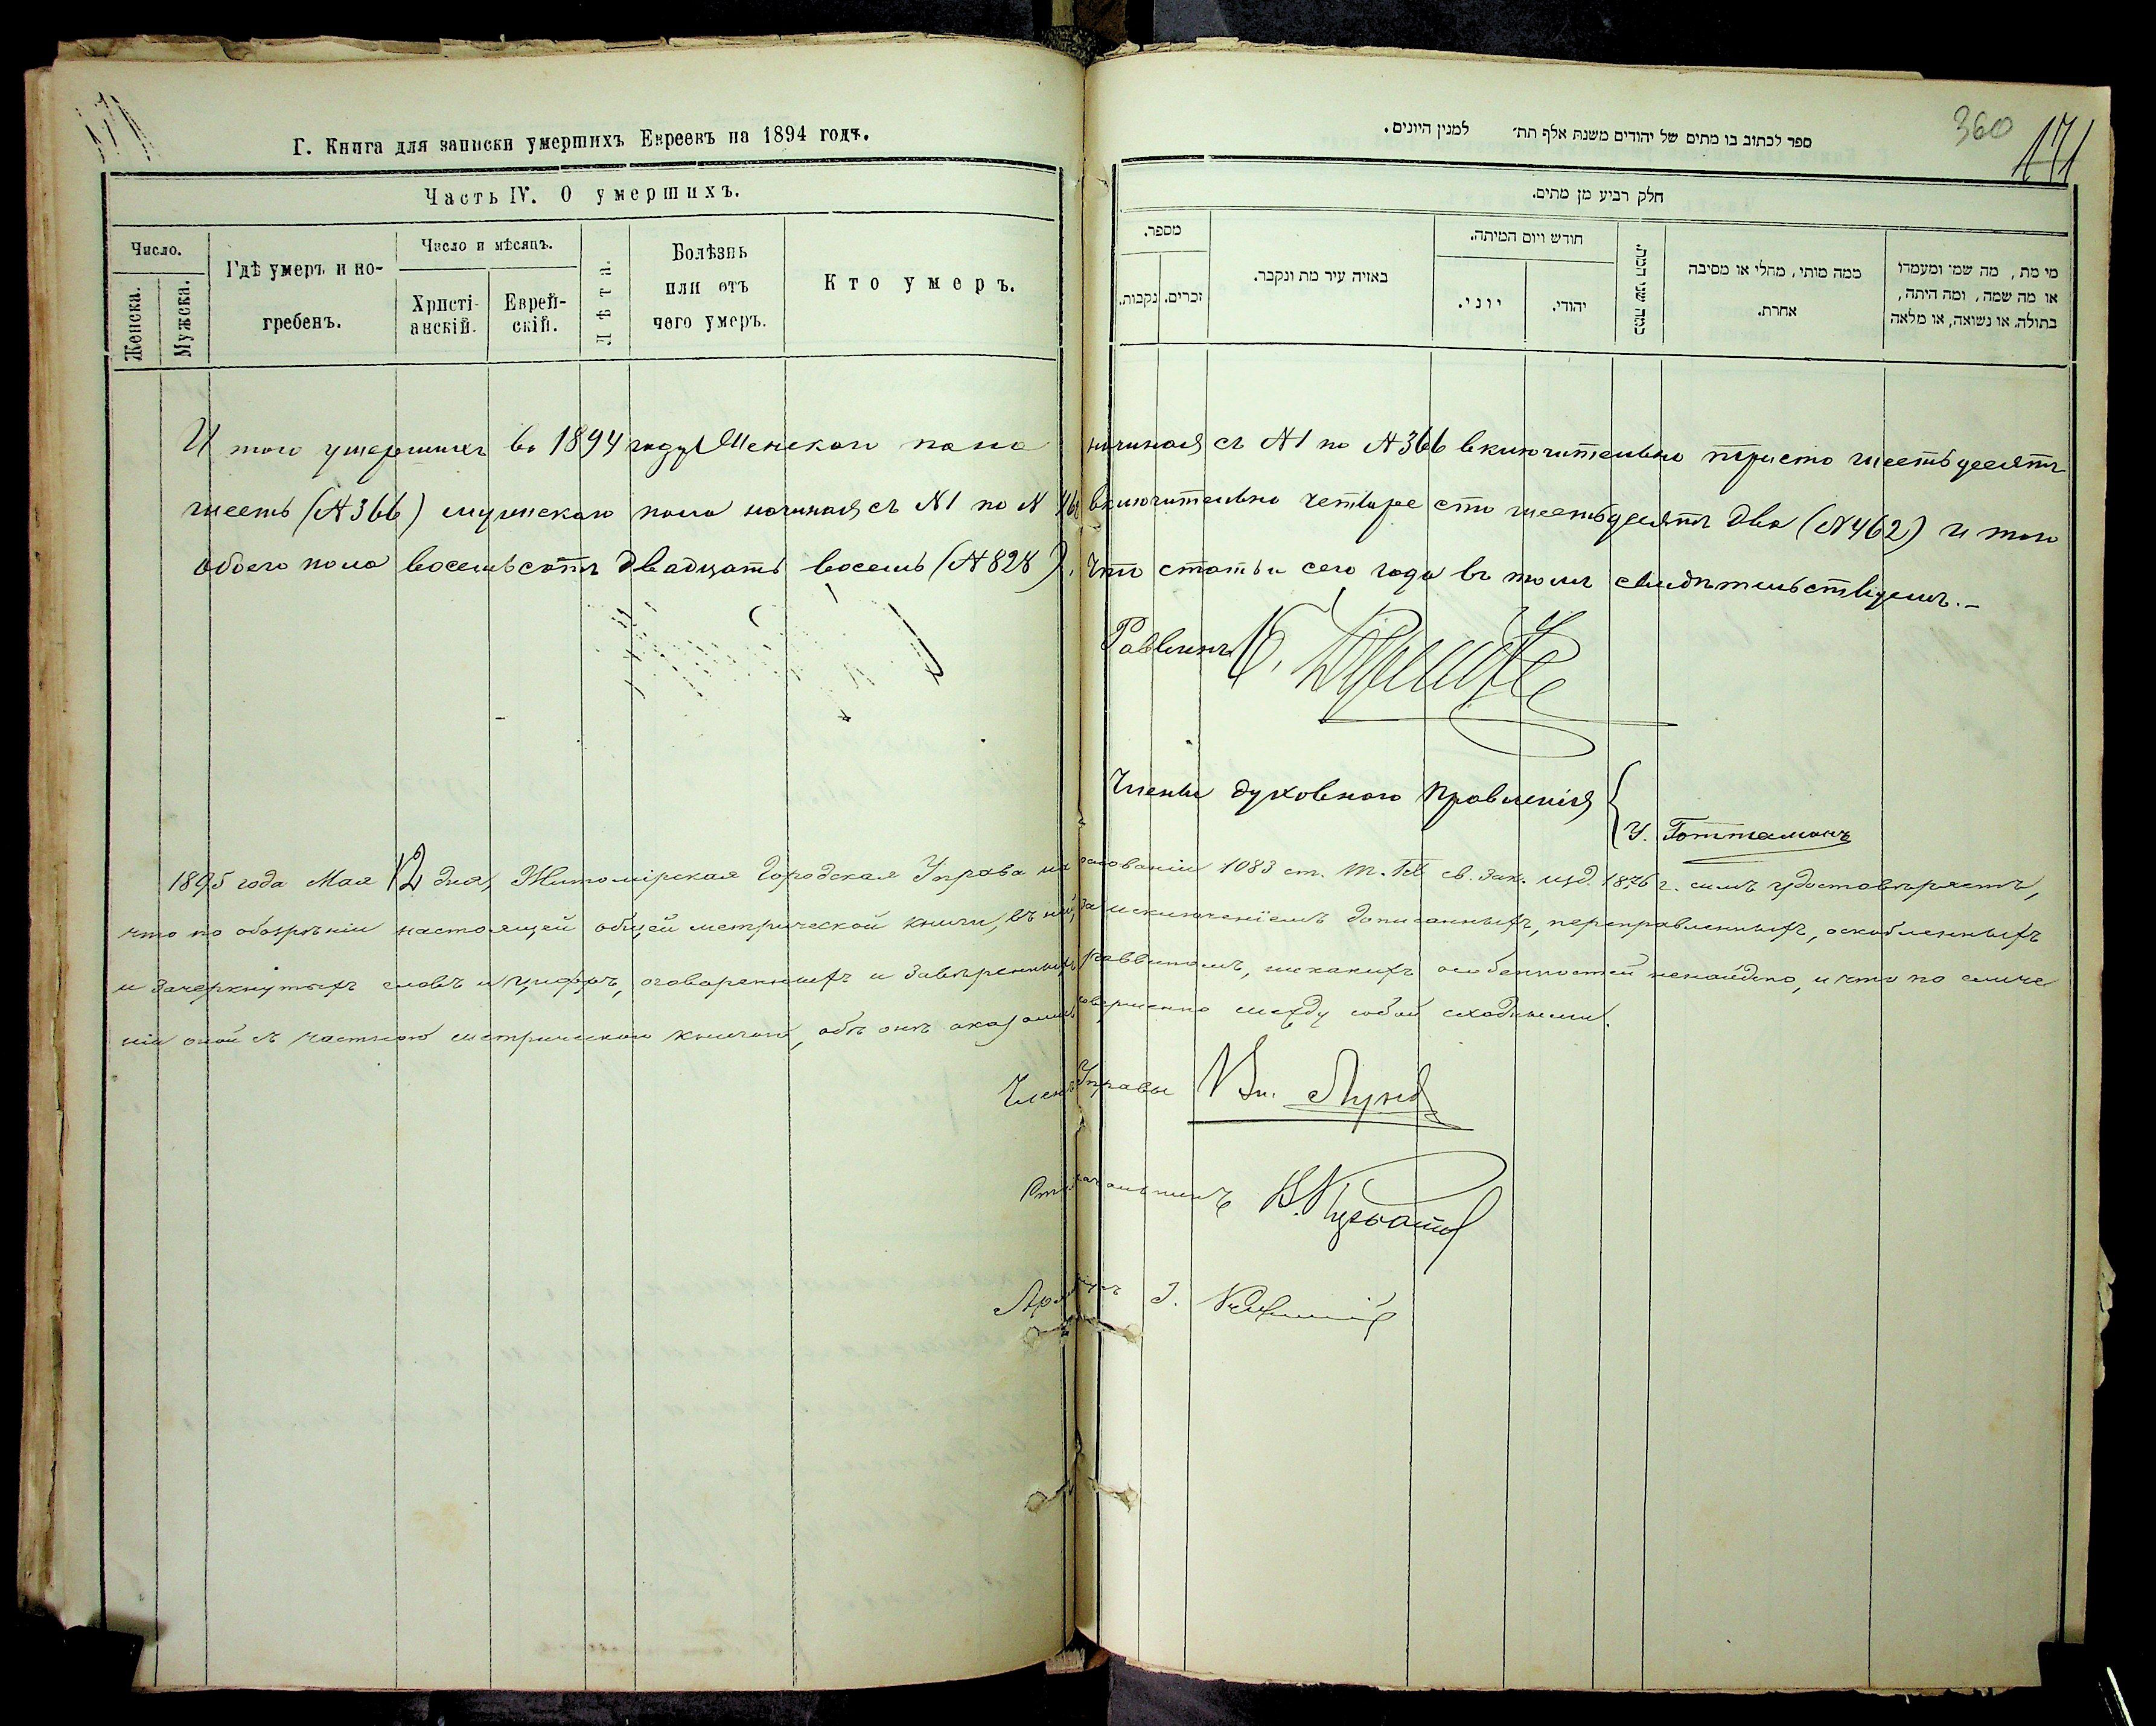 Г. Книга для записки умершихъ Евреевъ на 1894 годъ.
Часть IV. О умершихъ.
Число.
Женска.
Мужска.
Гдѣ умеръ и по-
гребенъ.
Число и мѣсяцъ.
Христі-
анскій.
Еврей-
скій.
Лѣта.
Болѣзнь
или отъ
чего умеръ.
Кто умеръ.
360
171
ספר לכתוב בו מתים של יהודים משנת אלף תת׳ למנין היונים.
חלק רביע מן מתים.
מספר.
נקבות.
זכרים.
באזיה עיר מת ונקבר.
חודש ויום המיתה.
יוני.
יהודי.
כמה שני המת.
ממה מותי, מחלי או מסיבה
אחרת.
מי מת, מה שמי ומעמדו
או מה שמה, ומה היתה,
בתולה, או נשואה, או מלאה
И того умершихъ въ 1894 году Женскаго пола начиная съ №1 по №366 включительно тристо шестьдесятъ
шесть (№366) мужскаго пола начиная съ №1 по № 462 включительно четыре сто шестьдесятъ два (№462) и того
обоего пола восемьсотъ двадцать восемь (№828). Что статьи сего года въ томъ свидѣтельствуемъ.-
Раввинъ
Члены духовнаго Правленія
У. Готтесманъ
1895 года Мая 12 дня, Житомірская Городская Управа на основаніи 1083 ст. т. IX св. зак. изд. 1876 г. симъ удостовѣряетъ,
что по обозрѣніи настоящей общей метрической книги, въ ней, за исключеніемъ дописанныхъ, переправленныхъ, оскобленныхъ
и зачеркнутыхъ словъ и цифръ, оговоренныхъ и завѣренныхъ раввиномъ, никакихъ особенностей ненайдено, и что по сличе
ніи оной съ частною метрическою книгою, обѣ онѣ оказались совершенно между собой сходными.
Членъ Управы Вл.
Столоначальникъ В.
Архиваріусъ І.